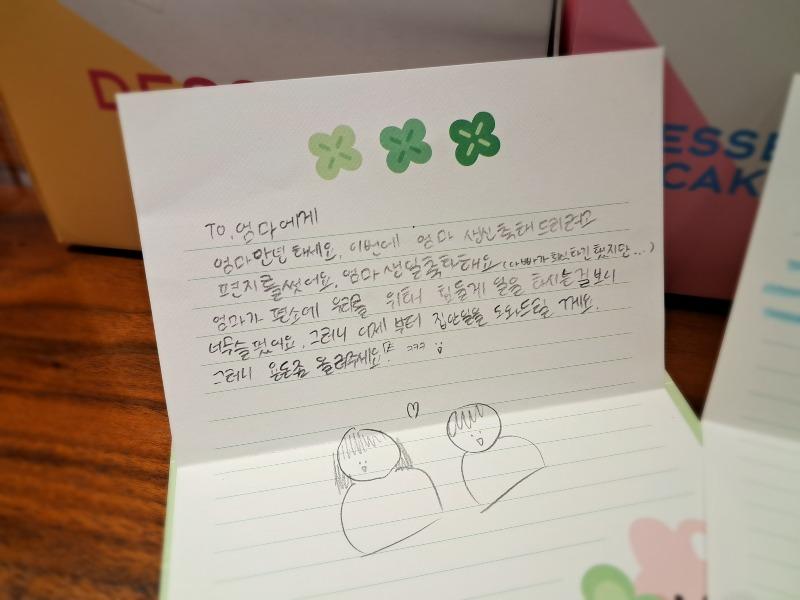 DESS
ESSE
CAK
To. 엄마에게
엄마 안녕하세요, 이번에 엄마 생신 축하해 드리려고
편지를 썼어요. 엄마 생일 축하해요 (아빠가 했지만...)
엄마가 평소에 우리를 위해 힘들게 일을 하시는걸 보니
너무 슬펐어요. 그러니 이제 부터 집안일을 도와드릴 게요.
그러니 용돈좀 올려주세요 ㅋㅋㅋ